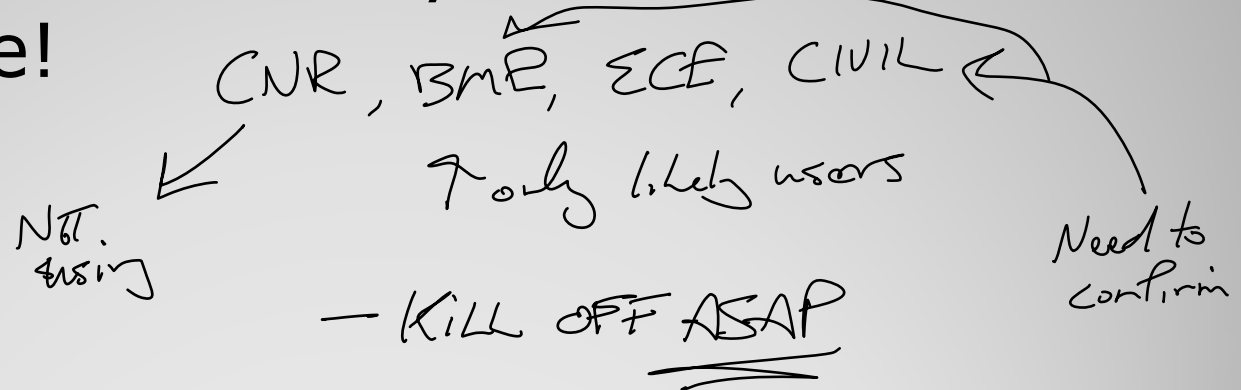 e!
CNR, BME, ECE, CIVIL
↑ only likely users
Not
using
Need to
confirm
- KILL OFF ASAP